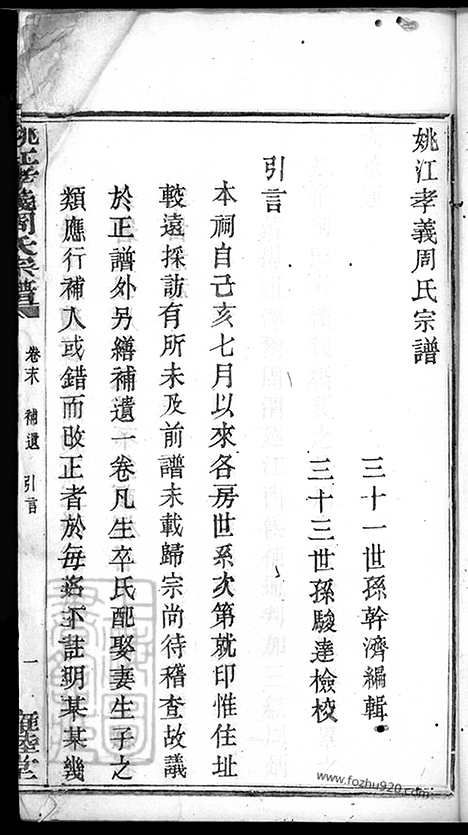 姚江孝義周氏宗譜
三十一世孫幹濟編輯
三十三世孫駿達檢校
引言
本祠自己亥七月以來各房世系次第就印惟住址
較遠採訪有所未及前譜未載歸宗尚待稽查故議
於正譜外另繕補遺一卷凡生卒氏配娶妻生子之
類應行補人或錯而改正者於每名下註明某某幾
姚江孝義周氏宗譜
卷末 補遺 引言
一
睦堂
www.fozhu920.com